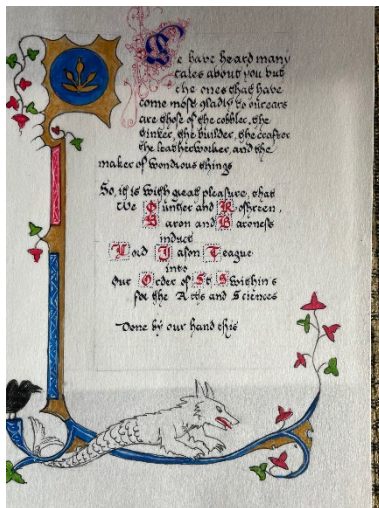 We have heard many
tales about you but
the ones that have
come most gladly to our ears
are those of the cobbler, the
tinker, the builder, the crafter
the leatherworker, and the
maker of wondrous things
So, it is with great pleasure, that
We Gunther and Roshreen,
Baron and Baroness
induct
Lord Jason Teague
into
Our Order of St Swithin's
for the Arts and Sciences
Done by our hand this